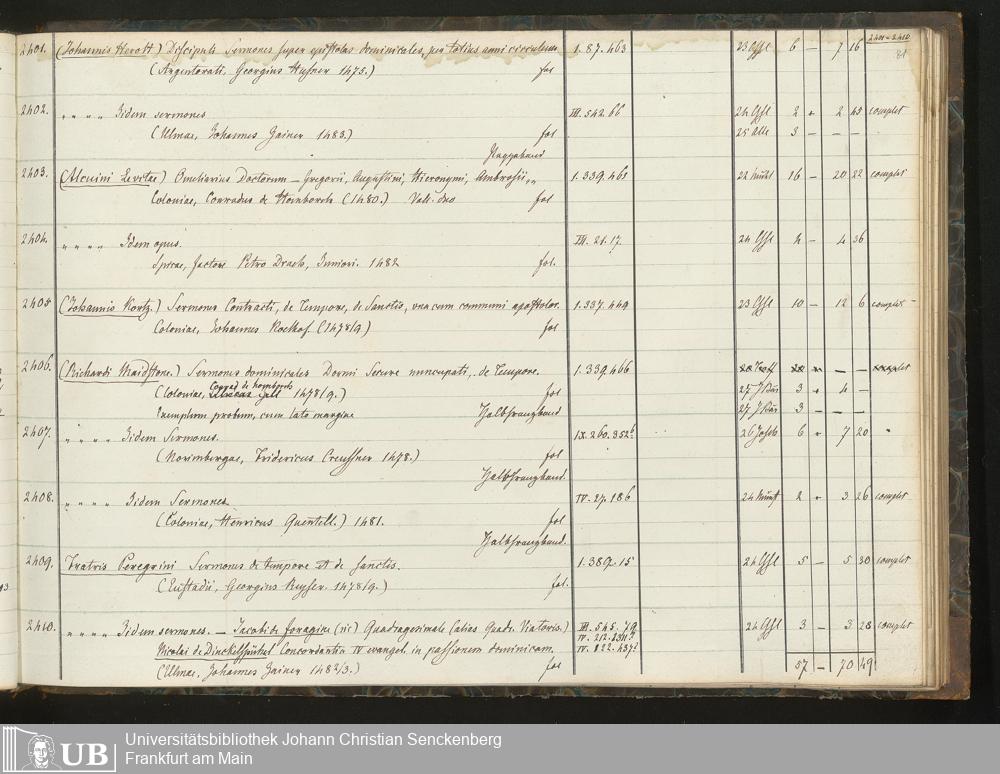 2401 - 2410
81
2401. (Johannis Herolt) Discipuli Sermones super epistolas dominicales, per totius anni circulum 1. 87. 463 23 6 — 7 16
(Argentorati, Georgius Husner 1475.) fol
2402. " " " " Iidem sermones III. 542. 66 24 2 2 45 complet
(Ulmae, Johannes Zainer 1483.) fol 25 3 — — —
2403. (Alcuini Levitae) Omeliarius Doctorum — Gregorii, Augustini, Hieronymi, Ambrosii, 1. 339. 461 22 16 — 20 22 complet
Coloniae, Conradus de Homborch (1480.) fol
2404. " " " " Idem opus. III. 21. 17. 24 4 — 4 36
Spirae, factore Petro Drach, Juniori. 1482 fol.
2405 (Johannis Kortz.) Sermones Contracti, de Tempore, de Sanctis, una cum communi apostolor. 1. 337. 449 23 10 — 12 6 complet
Coloniae, Johannes Koelhof (1478/9.) fol
2406. (Richardi Maidstone.) Sermones dominicales Dormi Secure nuncupati, de Tempore. 1. 339. 466 — —
Conrad de homborch
(Coloniae, 1478/9.) fol 27 3 4 —
Exemplum probum, cum lato margine Halbfranzband 27 3 — — —
2407. " " " " Iidem Sermones. IX. 260. 352 26 6 7 20 "
(Norimbergae, Fridericus Creussner 1478.) fol
Halbfranzband.
2408. " " " " Iidem Sermones IV. 27. 186 24 2 3 26 complet
(Coloniae, Henricus Quentell.) 1481. fol
Halbfranzband.
2409. Fratris Peregrini Sermones de tempore et de Sanctis. 1. 389. 15 24 5 — 5 30 complet
(Eustadii, Georgius Reyser. 1478/9.) fol.
2410. " " " " Iidem sermones. — Jacobi de foragine (sic) Quadragesimale (alias Quadr. Viatoris.) III. 545. 79 24 3 — 3 28 complet
Nicolai de Dinckelspühel Concordantia IV evangel. in passionem dominicam. IV. 212.
(Ulmae, Johannes Zainer 1482/3.) fol IV. 57 — 70 49
UB
Universitätsbibliothek Johann Christian Senckenberg
Frankfurt am Main